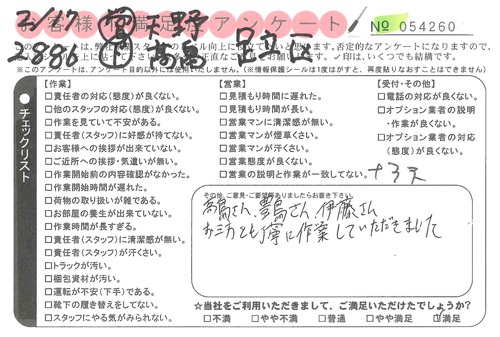 お客様満足度アンケート
No 054260
2/17 天野
2886 高島 足立区
このアンケートは、アンケート目的以外には使用いたしません。(※情報保護シールは1度はがすと、再度貼りなおすことはできません)
チェックリスト
【作業】
□責任者の対応(態度)が良くない。
□他のスタッフの対応(態度)が良くない。
□作業を見ていて不安がある。
□責任者(スタッフ)に好感が持てない。
□お客様への挨拶が出来ていない。
□ご近所への挨拶・気遣いが無い。
□作業開始前の内容確認がなかった。
□作業開始時間が遅れた。
□荷物の取り扱いが雑である。
□お部屋の養生が出来ていない。
□作業時間が長すぎる。
□責任者(スタッフ)に清潔感が無い。
□責任者(スタッフ)が汗くさい。
□トラックが汚い。
□梱包資材が汚い。
□運転が不安(下手)である。
□靴下の履き替えをしてない。
□スタッフにやる気がみられない。
【営業】
□見積もり時間に遅れた。
□見積もり時間が長い。
□営業マンに清潔感が無い。
□営業マンが煙草くさい。
□営業マンが汗くさい。
□営業態度が良くない。
□営業の説明と作業が一致してない。
【受付・その他】
□電話の対応が良くない。
□オプション業者の説明
・作業が良くない。
□オプション業者の対応
(態度)が良くない。
その他、ご意見・ご要望等ありましたらお書き下さい。
高島さん、豊島さん、伊藤さん
お三方とも丁寧に作業していただきました
☆当社をご利用いただきまして、ご満足いただけたでしょうか?
□不満 □やや不満 □普通 □やや満足 □満足